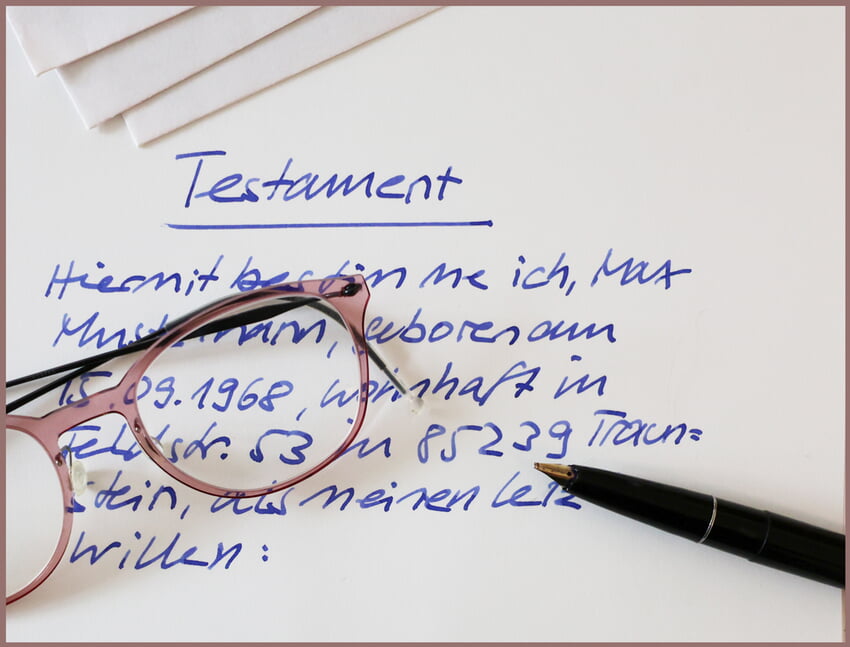 Testament
Hiermit bestimme ich, Max
Mustermann, geboren am
15.09.1968, wohnhaft in
Feldstr. 53 in 85239 Traun=
stein, als meinen letz
Willen: